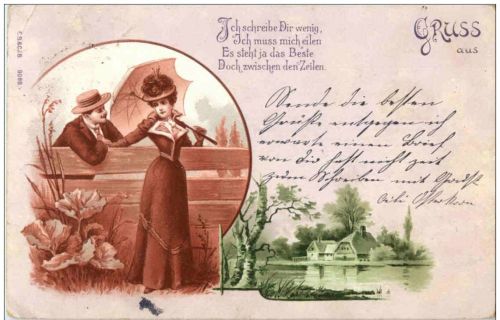 Ich schreibe Dir wenig,
Ich muss mich eilen
Es steht ja das Beste
Doch zwischen den Zeilen.
Gruss
aus
Sende die besten
Grüße entgegen ich
erwarte einen Brief
von Dir hast nicht Zeit
zum Schreiben mit